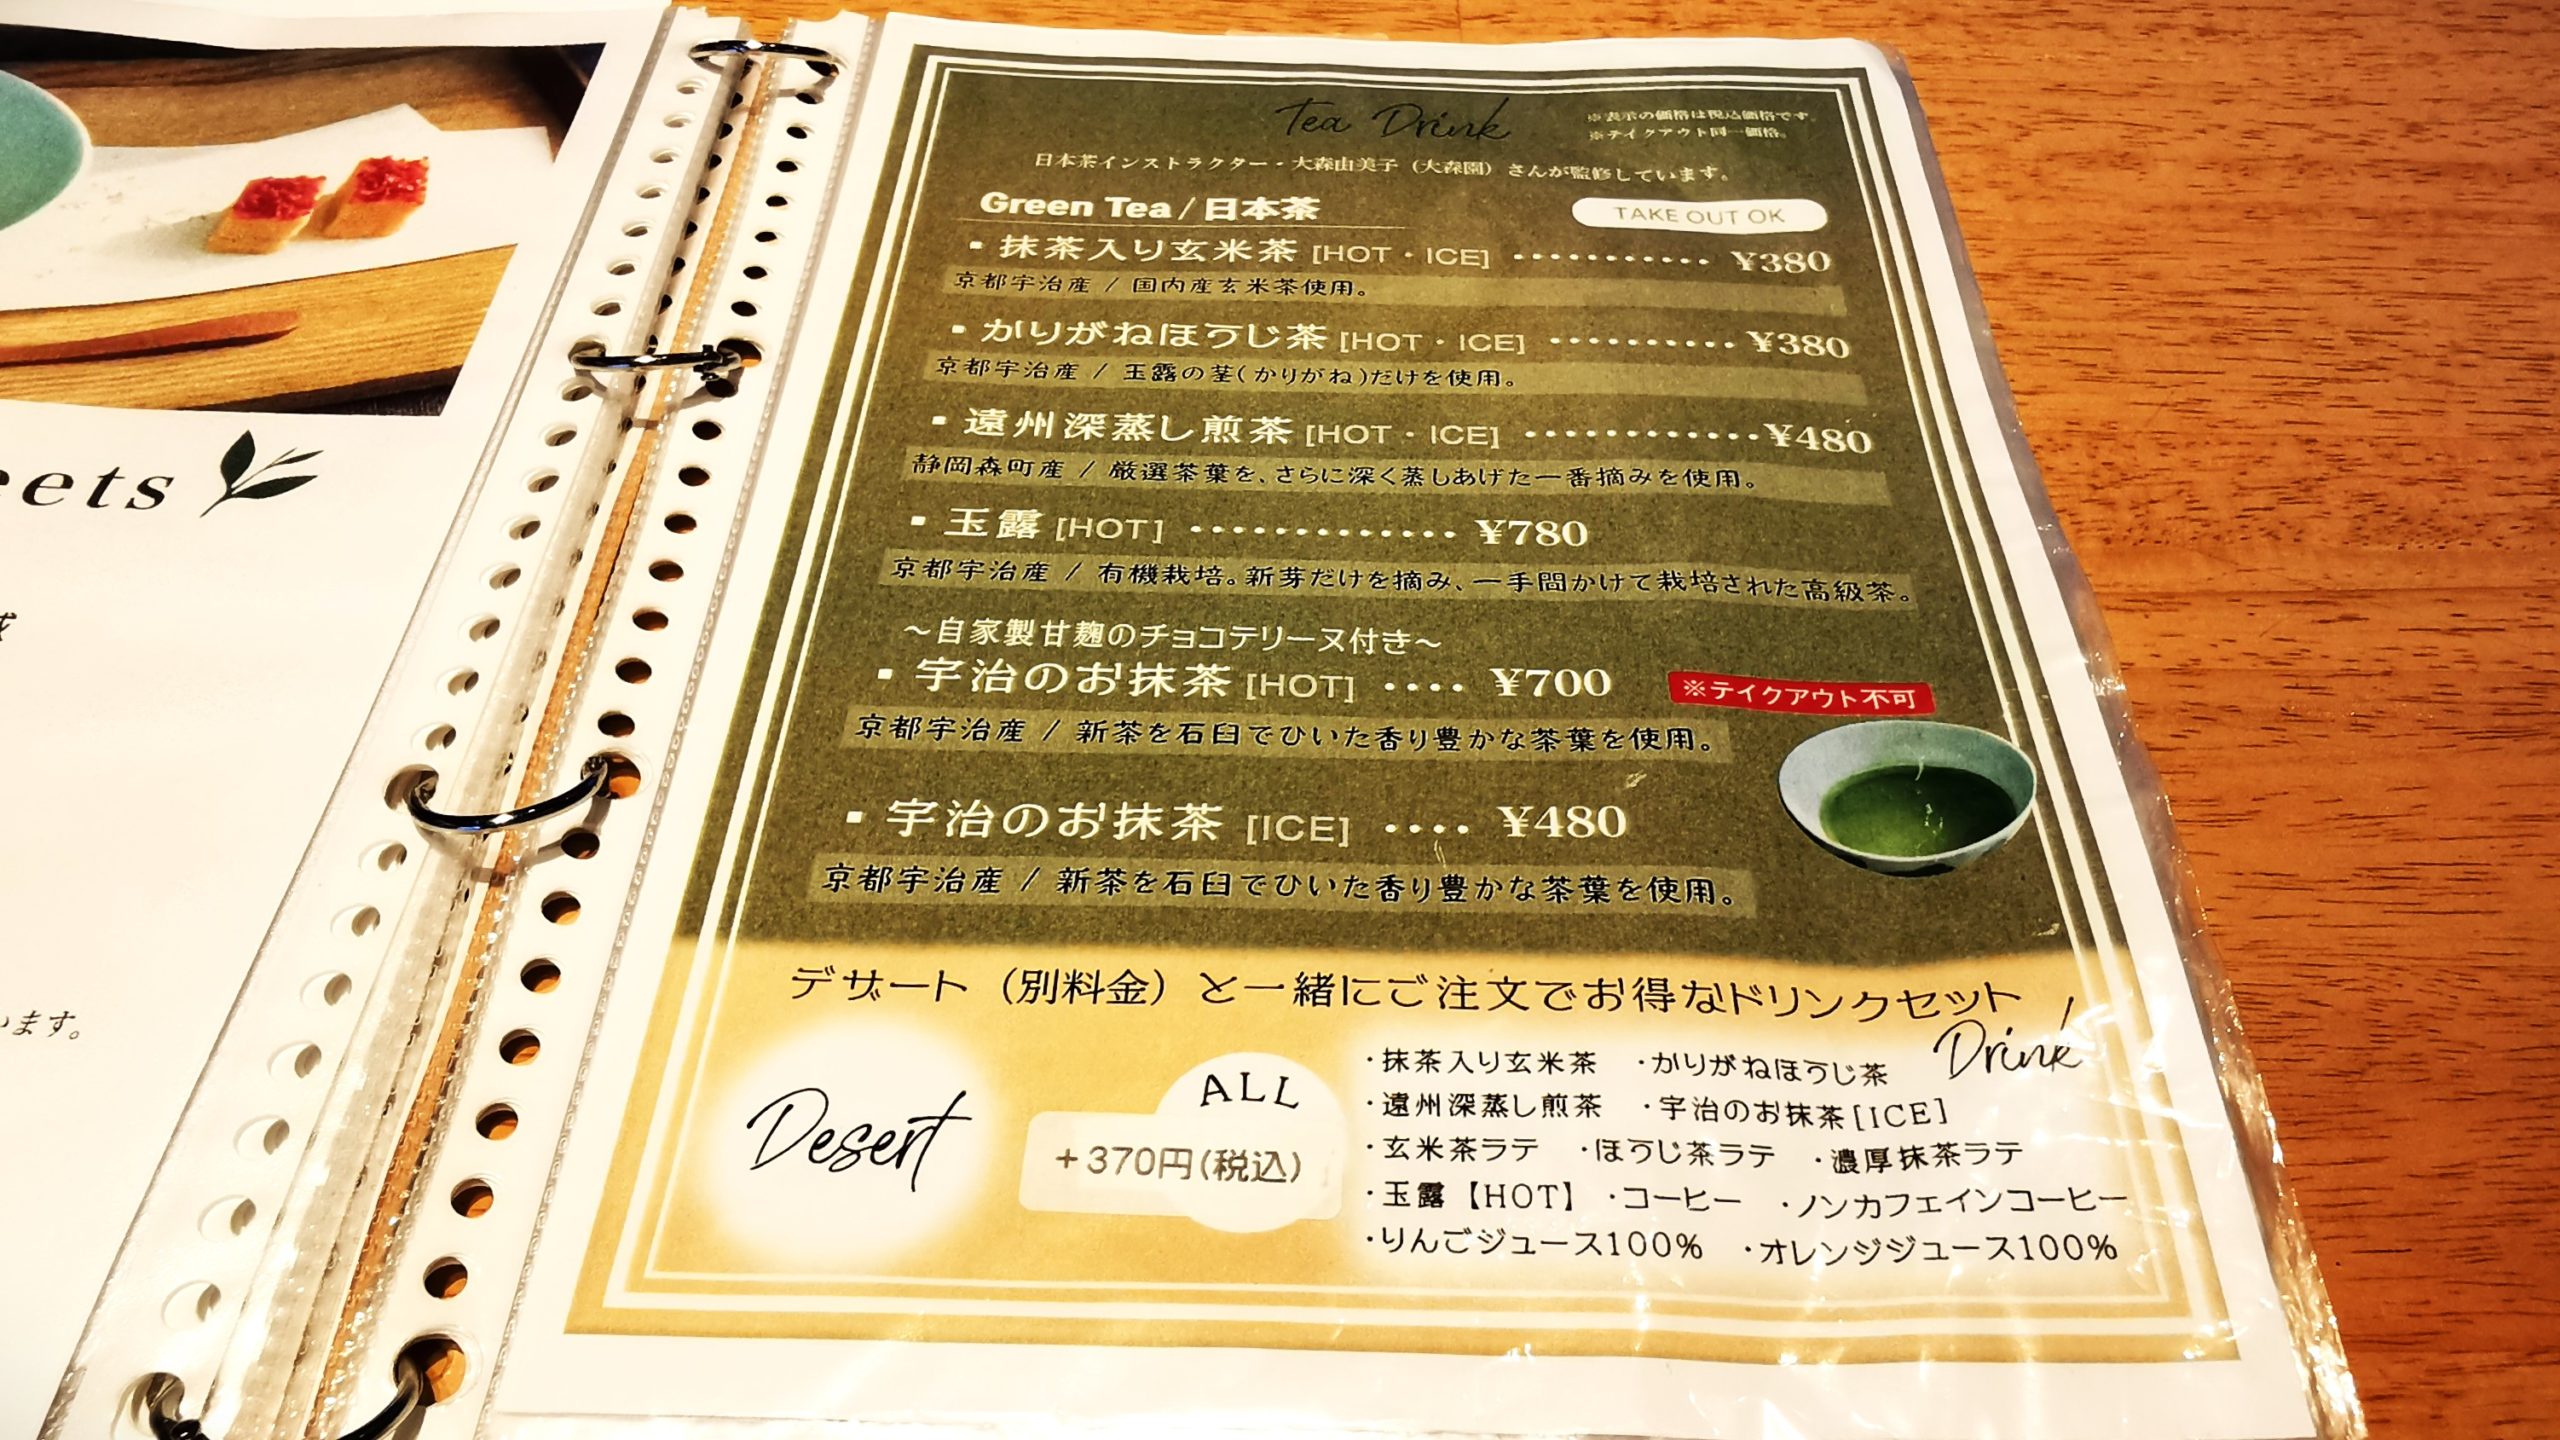 eets
います。
Tea Drink
※表示の価格は税込価格です。
※テイクアウト同一価格。
日本茶インストラクター・大森由美子（大森園）さんが監修しています。
Green Tea / 日本茶
TAKE OUT OK
▪ 抹茶入り玄米茶 [HOT・ICE] ･･･････････ ¥380
京都宇治産 / 国内産玄米茶使用。
▪ かりがねほうじ茶 [HOT・ICE] ･･････････ ¥380
京都宇治産 / 玉露の茎(かりがね)だけを使用。
▪ 遠州深蒸し煎茶 [HOT・ICE] ････････････ ¥480
静岡森町産 / 厳選茶葉を、さらに深く蒸しあげた一番摘みを使用。
▪ 玉露 [HOT] ･････････････ ¥780
京都宇治産 / 有機栽培。新芽だけを摘み、一手間かけて栽培された高級茶。
～自家製甘麹のチョコテリーヌ付き～
▪ 宇治のお抹茶 [HOT] ････ ¥700
※テイクアウト不可
京都宇治産 / 新茶を石臼でひいた香り豊かな茶葉を使用。
▪ 宇治のお抹茶 [ICE] ････ ¥480
京都宇治産 / 新茶を石臼でひいた香り豊かな茶葉を使用。
デザート（別料金）と一緒にご注文でお得なドリンクセット！
Desert
ALL
+370円(税込)
Drink
・抹茶入り玄米茶 ・かりがねほうじ茶
・遠州深蒸し煎茶 ・宇治のお抹茶[ICE]
・玄米茶ラテ ・ほうじ茶ラテ ・濃厚抹茶ラテ
・玉露【HOT】 ・コーヒー ・ノンカフェインコーヒー
・りんごジュース100% ・オレンジジュース100%